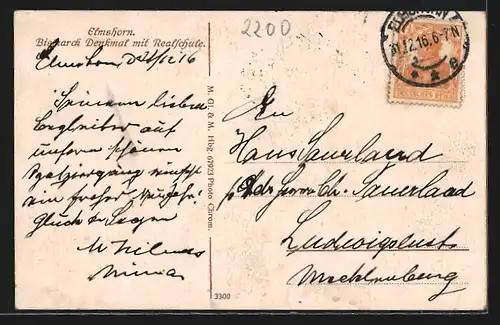 Elmshorn.
Bismarck Denkmal mit Realschule.
2200
Elmshorn, d. 31/12 16
Seinem lieben
Begleiter auf
unserm schönen
Spaziergang wünscht
ein frohes Neujahr!
Glück u. Segen
M. Gl. & M. Hbg. 67923 Photo Chrom.
3300
31.12.16.6-7N
An
Hans Sauerland
Adr. Herrn Chr. Sauerland
Ludwigslust
Mecklenburg